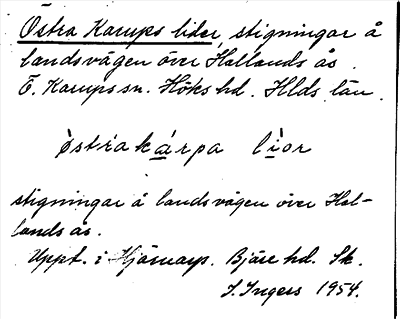 Östra Karups lider, stigningar å
landsvägen över Hallands ås.
Ö. Karups sn. Höks hd. Hlds län.
òstrakárpa lìor
stigningar å landsvägen över Hal-
lands ås.
Uppt. i Hjärnarp. Bjäre hd. Sk.
I. Ingers 1954.